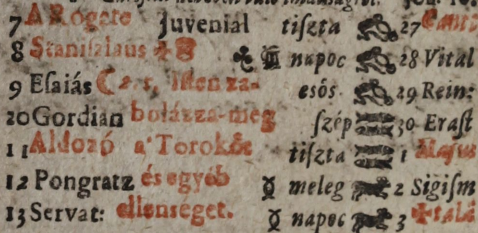 7 A Rogate Juvenial tiszta 27
8 Staniszlaus napoc 28 Vital
9 Esaiás Isten za- esös 29 Rein:
20 Gordian bolázza-meg szép 30 Erast
11 Aldozó a' Toroköt tiszta 1
12 Pongratz és egyéb meleg 2 Sigism
13 Servat: ellenséget. napoc 3